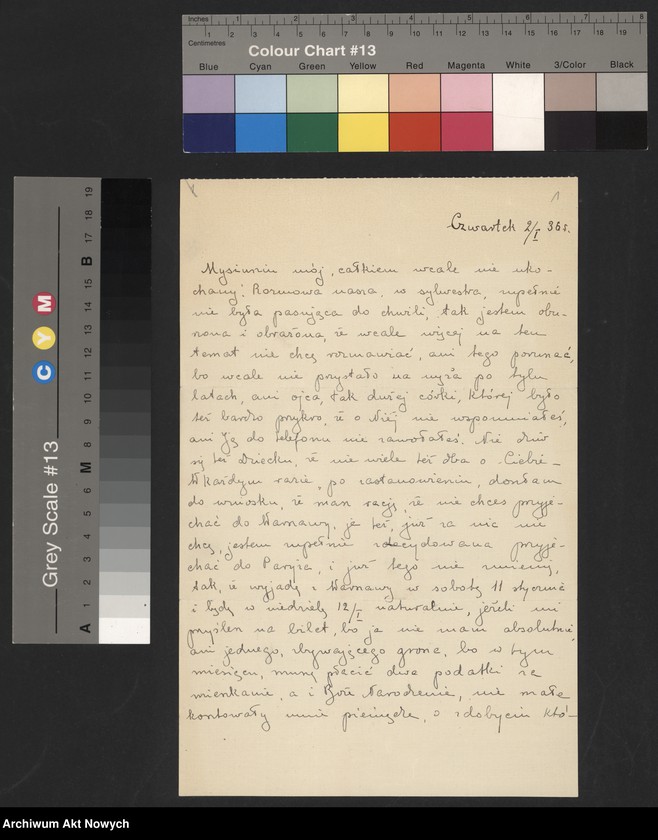 Inches 1 2 3 4 5 6 7 8
Centimetres 1 2 3 4 5 6 7 8 9 10 11 12 13 14 15 16 17 18 19
Colour Chart #13
Blue Cyan Green Yellow Red Magenta White 3/Color Black
Grey Scale #13
C Y M
A 1 2 3 4 5 6 M 8 9 10 11 12 13 14 15 B 17 18 19
1
Czwartek 2/I 36 r.
mój, całkiem wcale nie uko-
chany! Rozmowa nasza, w sylwestra, zupełnie
nie była pasująca do chwili, tak jestem obu-
rzona i obrażona, że wcale więcej na ten
temat nie chcę rozmawiać, ani tego poruszać,
bo wcale nie przystało na męża po tylu
latach, ani ojca, tak dużej córki, której było
też bardzo przykro, że o Niej nie wspomniałeś,
ani Ją do telefonu nie zawołałeś. Nie dziw
się też dziecku, że nie wiele też dba o Ciebie –
W każdym razie, po zastanowieniu, doszłam
do wniosku, że masz rację, że nie chcesz przyje-
chać do Warszawy, ja też, już za nic nie
chcę, jestem zupełnie zdecydowana przyje-
chać do Paryża, i już tego nie zmienię,
tak, że wyjadę z Warszawy w sobotę 11 stycznia
i będę w niedzielę 12/I naturalnie, jeżeli mi
przyślesz na bilet, bo ja nie mam absolutnie,
ani jednego, zbywającego grosza, bo w tym
miesiącu, muszę płacić dwa podatki za
mieszkanie, a i Boże Narodzenie, nie mało
kosztowały mnie pieniędzy, o zdobyciu któ-
Archiwum Akt Nowych